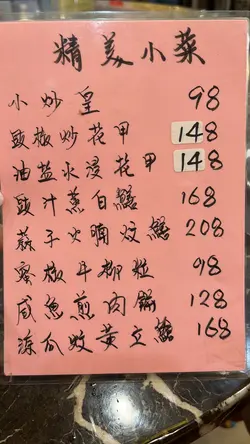 精美小菜
小炒皇 98
豉椒炒花甲 148
油盐水浸花甲 148
豉汁蒸白鱔 168
蒜子火腩炆鱔 208
蜜椒牛柳粒 98
咸魚煎肉餅 128
涼瓜炆黄立鱠 168